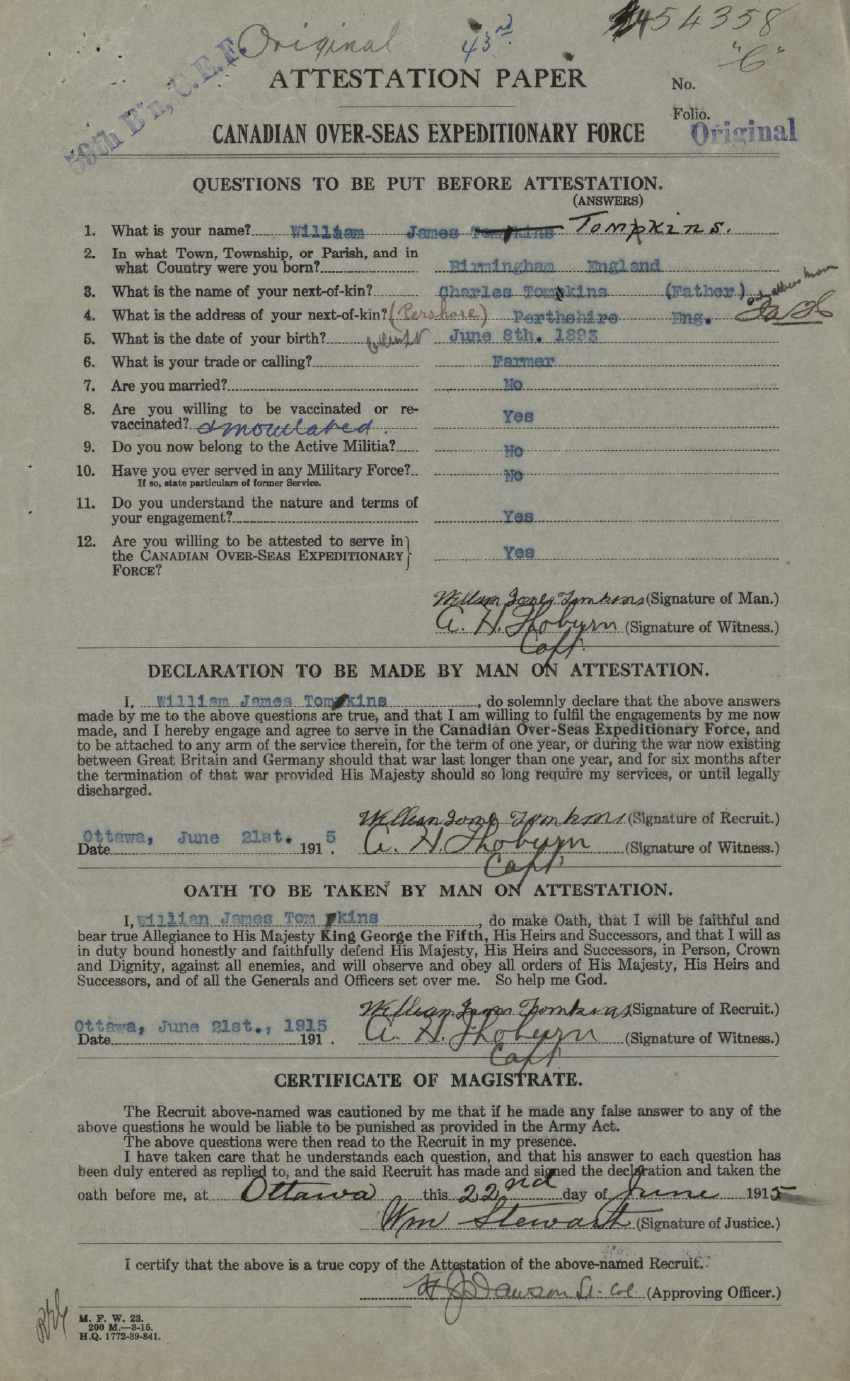 Original 43rd 454358
59th B'n, C.E.F.
"C"
ATTESTATION PAPER
No.
Folio.
Original
CANADIAN OVER-SEAS EXPEDITIONARY FORCE
QUESTIONS TO BE PUT BEFORE ATTESTATION.
(ANSWERS)
1. What is your name? William James Tompkins Tompkins.
2. In what Town, Township, or Parish, and in
what Country were you born? Birmingham England
3. What is the name of your next-of-kin? Charles Tompkins (Father)
4. What is the address of your next-of-kin? (Pershore) Perthshire Eng.
5. What is the date of your birth? June 8th. 1893
6. What is your trade or calling? Farmer
7. Are you married? No
8. Are you willing to be vaccinated or re-
vaccinated? & inoculated. Yes
9. Do you now belong to the Active Militia? No
10. Have you ever served in any Military Force? No
If so, state particulars of former Service.
11. Do you understand the nature and terms of
your engagement? Yes
12. Are you willing to be attested to serve in
the CANADIAN OVER-SEAS EXPEDITIONARY Yes
FORCE?
William James Tomkins (Signature of Man.)
A. H. Thoburn (Signature of Witness.)
Capt.
DECLARATION TO BE MADE BY MAN ON ATTESTATION.
I, William James Tompkins, do solemnly declare that the above answers
made by me to the above questions are true, and that I am willing to fulfil the engagements by me now
made, and I hereby engage and agree to serve in the Canadian Over-Seas Expeditionary Force, and
to be attached to any arm of the service therein, for the term of one year, or during the war now existing
between Great Britain and Germany should that war last longer than one year, and for six months after
the termination of that war provided His Majesty should so long require my services, or until legally
discharged.
William James Tomkins (Signature of Recruit.)
Ottawa, June 21st. 5
Date 191 . A. H. Thoburn (Signature of Witness.)
Capt
OATH TO BE TAKEN BY MAN ON ATTESTATION.
I, Willian James Tompkins, do make Oath, that I will be faithful and
bear true Allegiance to His Majesty King George the Fifth, His Heirs and Successors, and that I will as
in duty bound honestly and faithfully defend His Majesty, His Heirs and Successors, in Person, Crown
and Dignity, against all enemies, and will observe and obey all orders of His Majesty, His Heirs and
Successors, and of all the Generals and Officers set over me. So help me God.
William James Tomkins (Signature of Recruit.)
Ottawa, June 21st., 1915
Date 191 . A. H. Thoburn (Signature of Witness.)
Capt
CERTIFICATE OF MAGISTRATE.
The Recruit above-named was cautioned by me that if he made any false answer to any of the
above questions he would be liable to be punished as provided in the Army Act.
The above questions were then read to the Recruit in my presence.
I have taken care that he understands each question, and that his answer to each question has
been duly entered as replied to, and the said Recruit has made and signed the declaration and taken the
oath before me, at Ottawa this 22nd day of June 1915
Wm Stewart (Signature of Justice.)
I certify that the above is a true copy of the Attestation of the above-named Recruit.
H J Dawson Lt-Col (Approving Officer.)
M. F. W. 23.
200 M.—3-15.
H.Q. 1772-39-841.